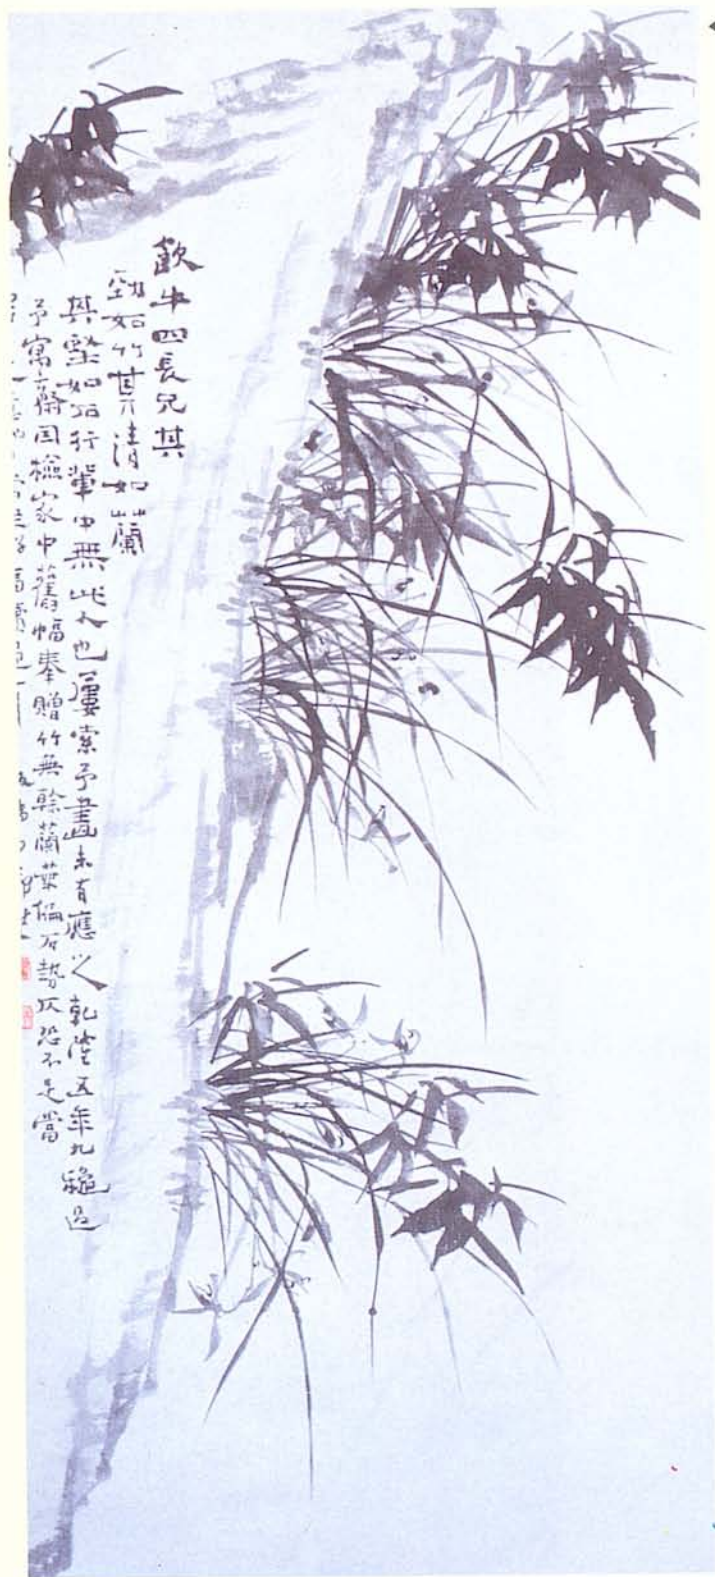 飲牛四長兄其
勁如竹其清如蘭
其堅如石行輩中無此人也屢索予畫未有應之乾隆五年九龝過
予寓齋因檢家中舊幅奉贈竹無榦蘭葉偏石勢仄恐不足當